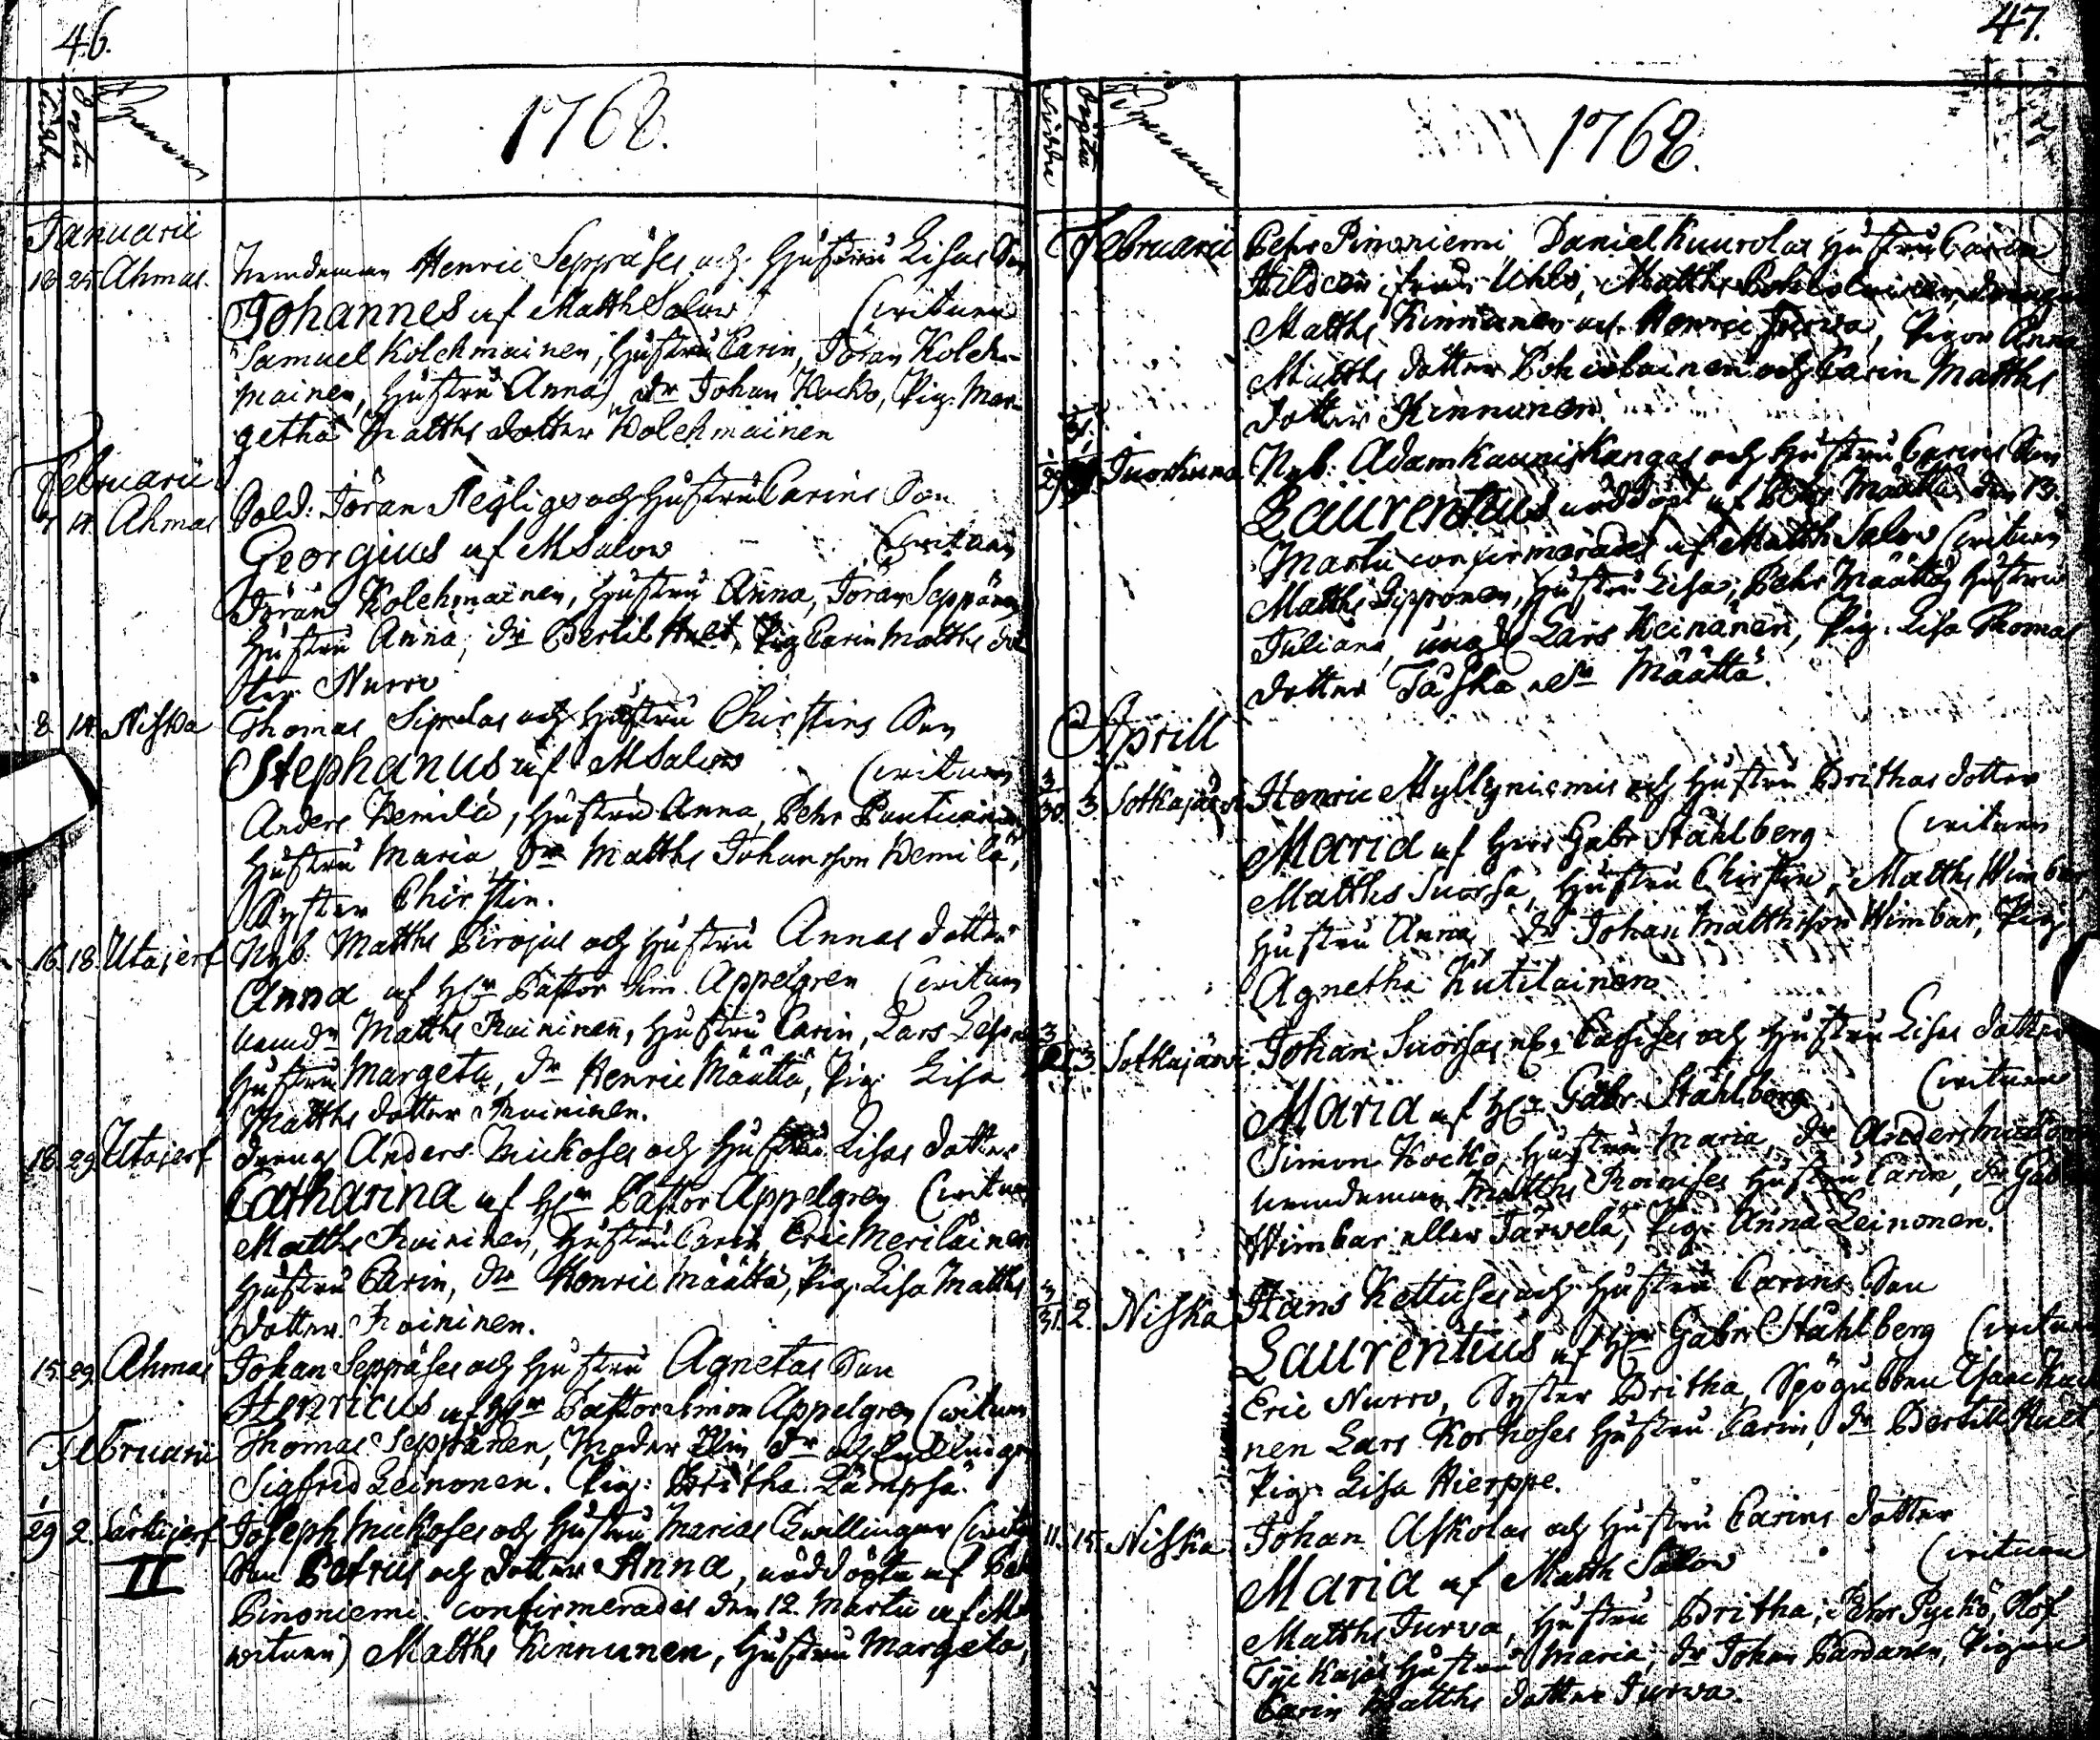 46.
födde
döpte
1768.
Januarii
16. 25. Ahmas. Nemndeman Henric Seppäses och hustru Lisas Son
Johannes af Matth Salow (vitnen
Samuel Kolehmainen, hustru Carin, Jöran Koleh-
mainen, hustru Anna, dr Johan Kocko, Pig. Mar-
getha Matths dotter Kolehmainen
Februarii
7. 14. Ahmas Sold: Jöran Fegligs och hustru Carins Son
Georgius af M Salow (vitnen
Jöran Kolehmainen, hustru Anna, Jöran Seppänen
hustru Anna, dr Bertil Huld, Pig Carin Matths dot
ter Nurro
8. 14. Niska Thomas Sipolas och hustru Chirstins Son
Stephanus af M Salow (vitnen
Anders Kemilä, hustru Anna, Pehr
hustru Maria, dr Matths Johansson Kemilä,
Syster Chirstin.
16. 18. Utajerf Nyb. Matths Pirojus och hustru Annas dotter
Anna af Hr Pastor Sim. Appelgren (vitnen
nemdn Matths Roininen, hustru Carin, Lars
hustru Margeta, dr Henric Määttä, Pig. Lisa
Matths dotter Roininen.
18. 29. Utajerf Anders Mickoses och hustru Lisas dotter
Catharina af Hr Pastor Appelgren (vitnen
Matths Roininen, hustru Carin, Eric Meriläinen
hustru Carin, dr Henric Määttä, Pig. Lisa Matths
dotter Roininen.
15. 29. Ahmas Johan Seppäses och hustru Agnetas Son
Henricus af Hr Pastor Simon Appelgren (vitnen
Februarii Thomas Seppänen, Moder Elin, dr och
Sigfrid Leinonen. Pig: Britha Lämpsä.
1/29 2. Särkijerf Joseph Mickoses och hustru Marias Tvillingar (vitn
II Son Petrus och dotter Anna, nöddöpte af Pehr
Pinoniemi. confirmerades den 12. Martii af M
witnen) Matths Kinnunen, hustru Margeta,
47.
födde
döpte
1768.
Februarii Pehr Pinoniemi, Daniel Kuurolas hustru Carin
från Uhlo, Matths Pohiolainen, drengar
Matths Kinnunen och Henric Jurva, Pigor Anna
Matths dotter Pohiolainen och Carin Matths
dotter Kinnunen
Nyb. Adam Kauniskangas och hustru Carins Son
Laurentius nöddöpt af Pehr Määttä den 13.
Martii confirmerades af Matth Salow (vitnen
Matths Lipponen, hustru Lisa, Pehr Määttä, hustru
Juliana, ung dr Lars Keinänen, Pig. Lisa Thomas
dotter Määttä.
Aprill
3/30. 3. Sotkajärvi Henric Myllyniemis och hustru Brithas dotter
Maria af Herr Gabr Ståhlberg (vitnen
Matths Suorsa, hustru Chirstin, Matths Wimbar
hustru Anna, dr Johan Matthsson Wimbar, Pig
Agnetha Kutilainen.
3. Sotkajärvi Johan Suorsas och hustru Lisas dotter
Maria af Hr Gabr. Ståhlberg (vitnen
Simon Kocko, hustru Maria, dr Anders
nemdeman Matths Roinises hustru Carin, dr Gabr
Wimbar eller Tarvela, Pig. Anna Leinonen.
3/31. 2. Niska Hans Kettuses och hustru Carins Son
Laurentius af Hr Gabr Ståhlberg (vitnen
Eric Nurro, Syster Britha, Isaac
nen Lars Korhoses hustru Carin, dr Bertill Huld
Pig. Lisa Hierppe.
11. 15. Niska Johan Askolas och hustru Carins dotter
Maria af Matth Salow (vitnen
Matths Turva, hustru Britha, Pehr Pyckö, Olof
hustru Maria, dr Johan Pardanen, Pigan
Carin Matths dotter Turva.